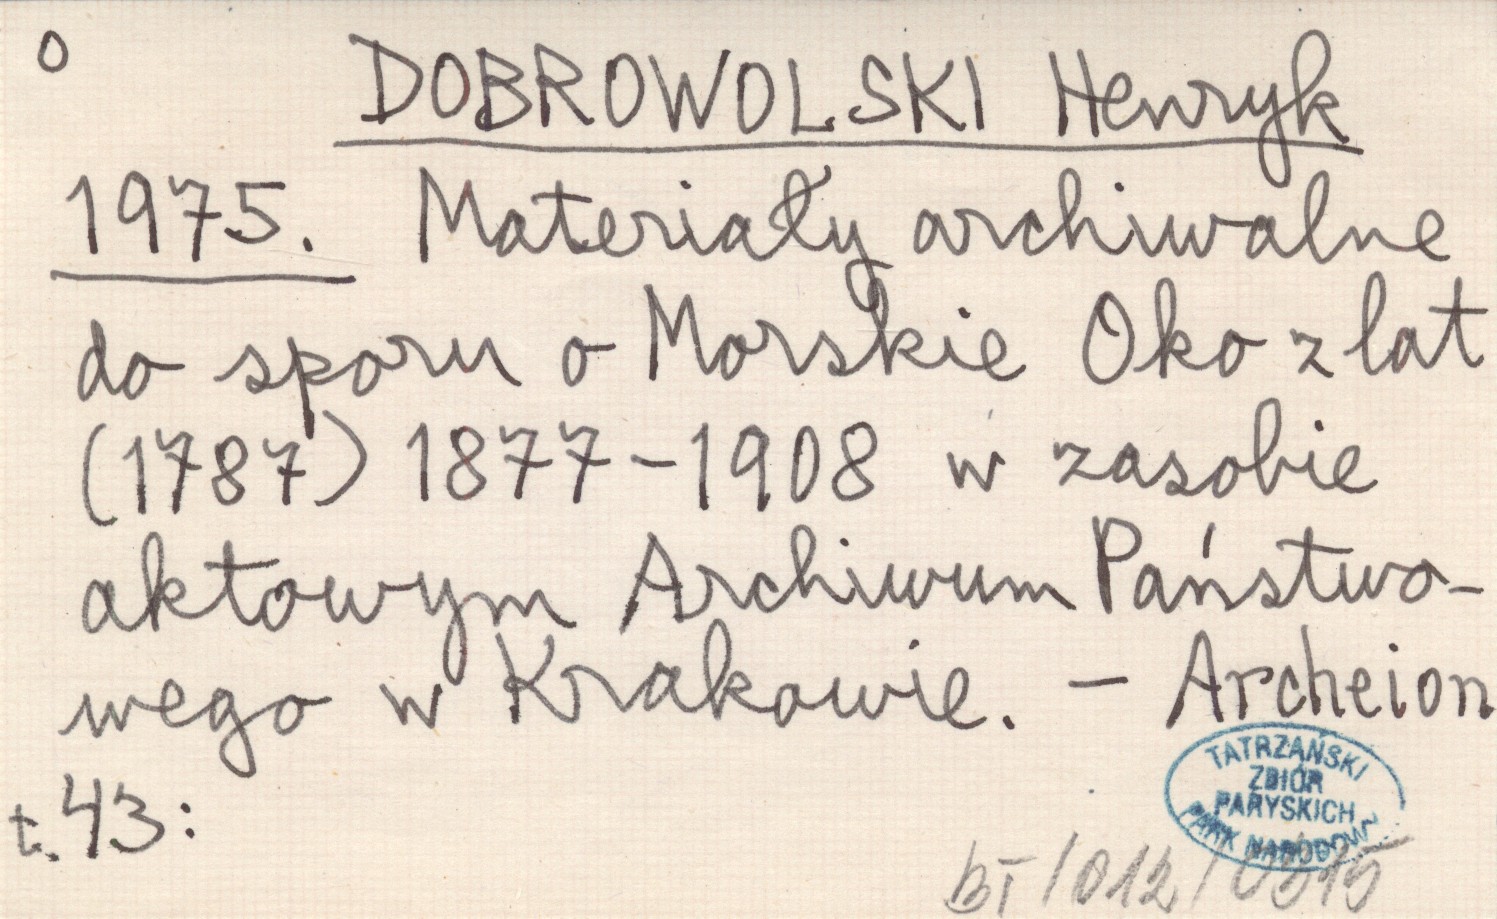 o
DOBROWOLSKI Henryk
1975. Materiały archiwalne
do sporu o Morskie Oko z lat
(1787) 1877-1908 w zasobie
aktowym Archiwum Państwo-
wego w Krakowie. - Archeion
t. 43:
TATRZAŃSKI
ZBIÓR
PARYSKICH
PARK NARODOWY
BT/012/0315